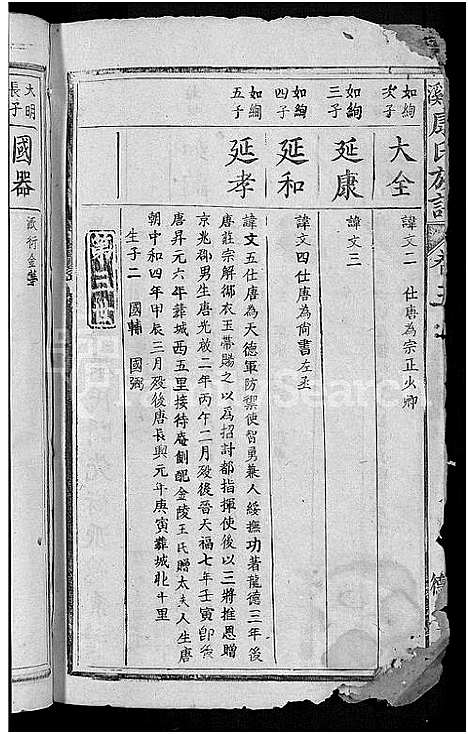 溪康氏族譜 卷之
如絢次子
大全
諱文二 仕唐為宗正少卿
如絢三子
延康
諱文三
如絢四子
延和
諱文四仕唐為尚書左丞
如絢五子
延孝
諱文五仕唐為天德軍防禦使智勇兼人綏撫功著龍德三年後
唐莊宗解御衣玉帶賜之以為招討都指揮使後以三將推恩贈
京兆郡男生唐光啟二年丙午二月殁後晉天福七年壬寅即
唐昇元六年葬城西五里接待庵側配金陵王氏贈太夫人生唐
朝中和四年甲辰三月殁後唐長興元年庚寅葬城北十里
生子二 國輔 國弼
大明長子
國器
派衍金